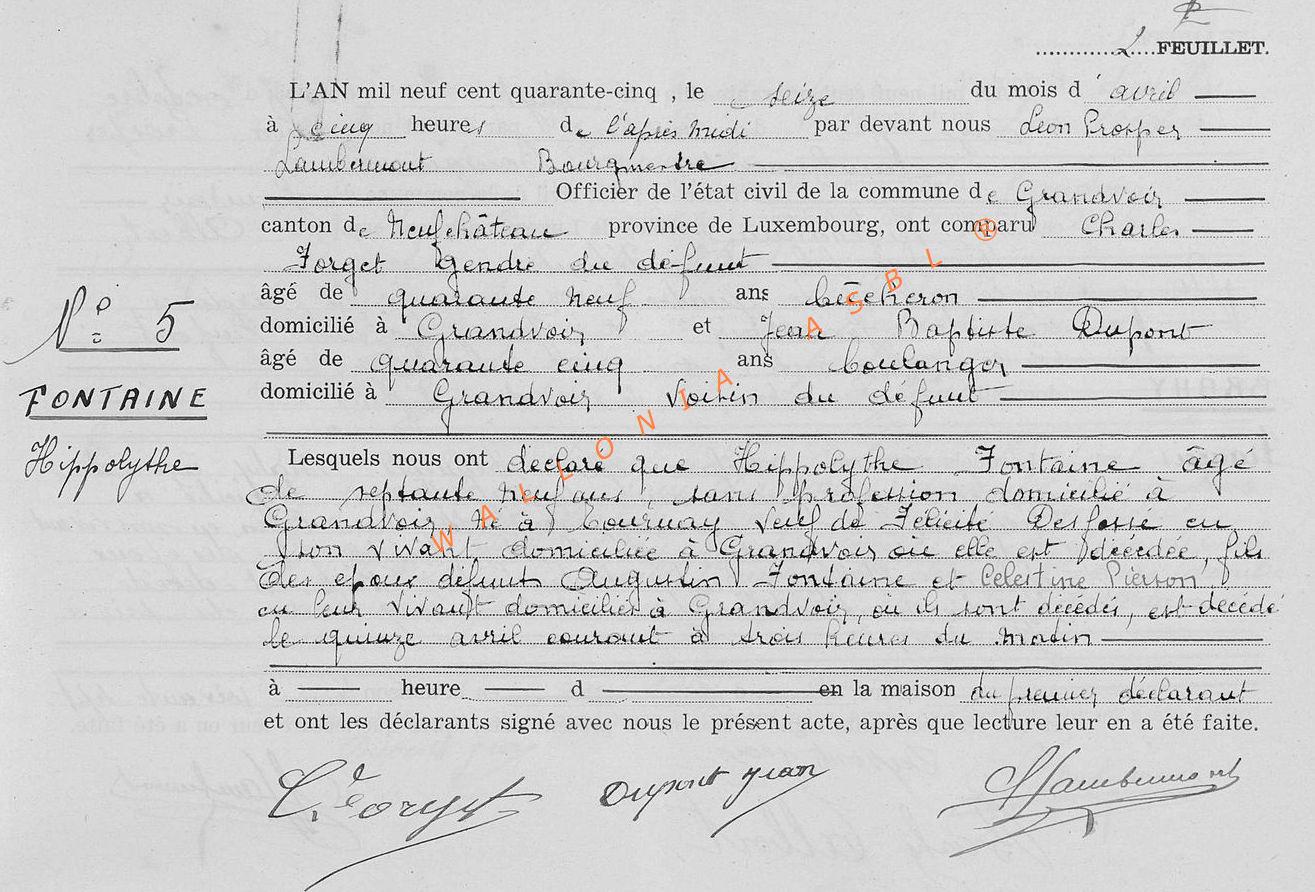 2 FEUILLET.
L'AN mil neuf cent quarante-cinq , le seize du mois d' avril
à cinq heures de l'après midi par devant nous Léon Prosper
Lambermont Bourgmestre
Officier de l'état civil de la commune de Grandvoir
canton de Neufchâteau province de Luxembourg, ont comparu Charles
Forget gendre du défunt
âgé de quarante neuf ans bûcheron
domicilié à Grandvoir et Jean Baptiste Dupont
âgé de quarante cinq ans boulanger
domicilié à Grandvoir voisin du défunt
N° 5
FONTAINE
Hippolythe
Lesquels nous ont déclaré que Hippolythe Fontaine âgé
de septante neuf ans, sans profession domicilié à
Grandvoir, né à Tournay veuf de Félicité Desfossé en
son vivant domiciliée à Grandvoir où elle est décédée, fils
des époux défunt Augustin Fontaine et Célestine Pierson
en leur vivant domiciliés à Grandvoir, où ils sont décédés, est décédé
le quinze avril courant à trois heures du matin
à heure d en la maison du premier déclarant
et ont les déclarants signé avec nous le présent acte, après que lecture leur en a été faite.
Dupont Jean
Lambermont
WALLONIA ASBL ®